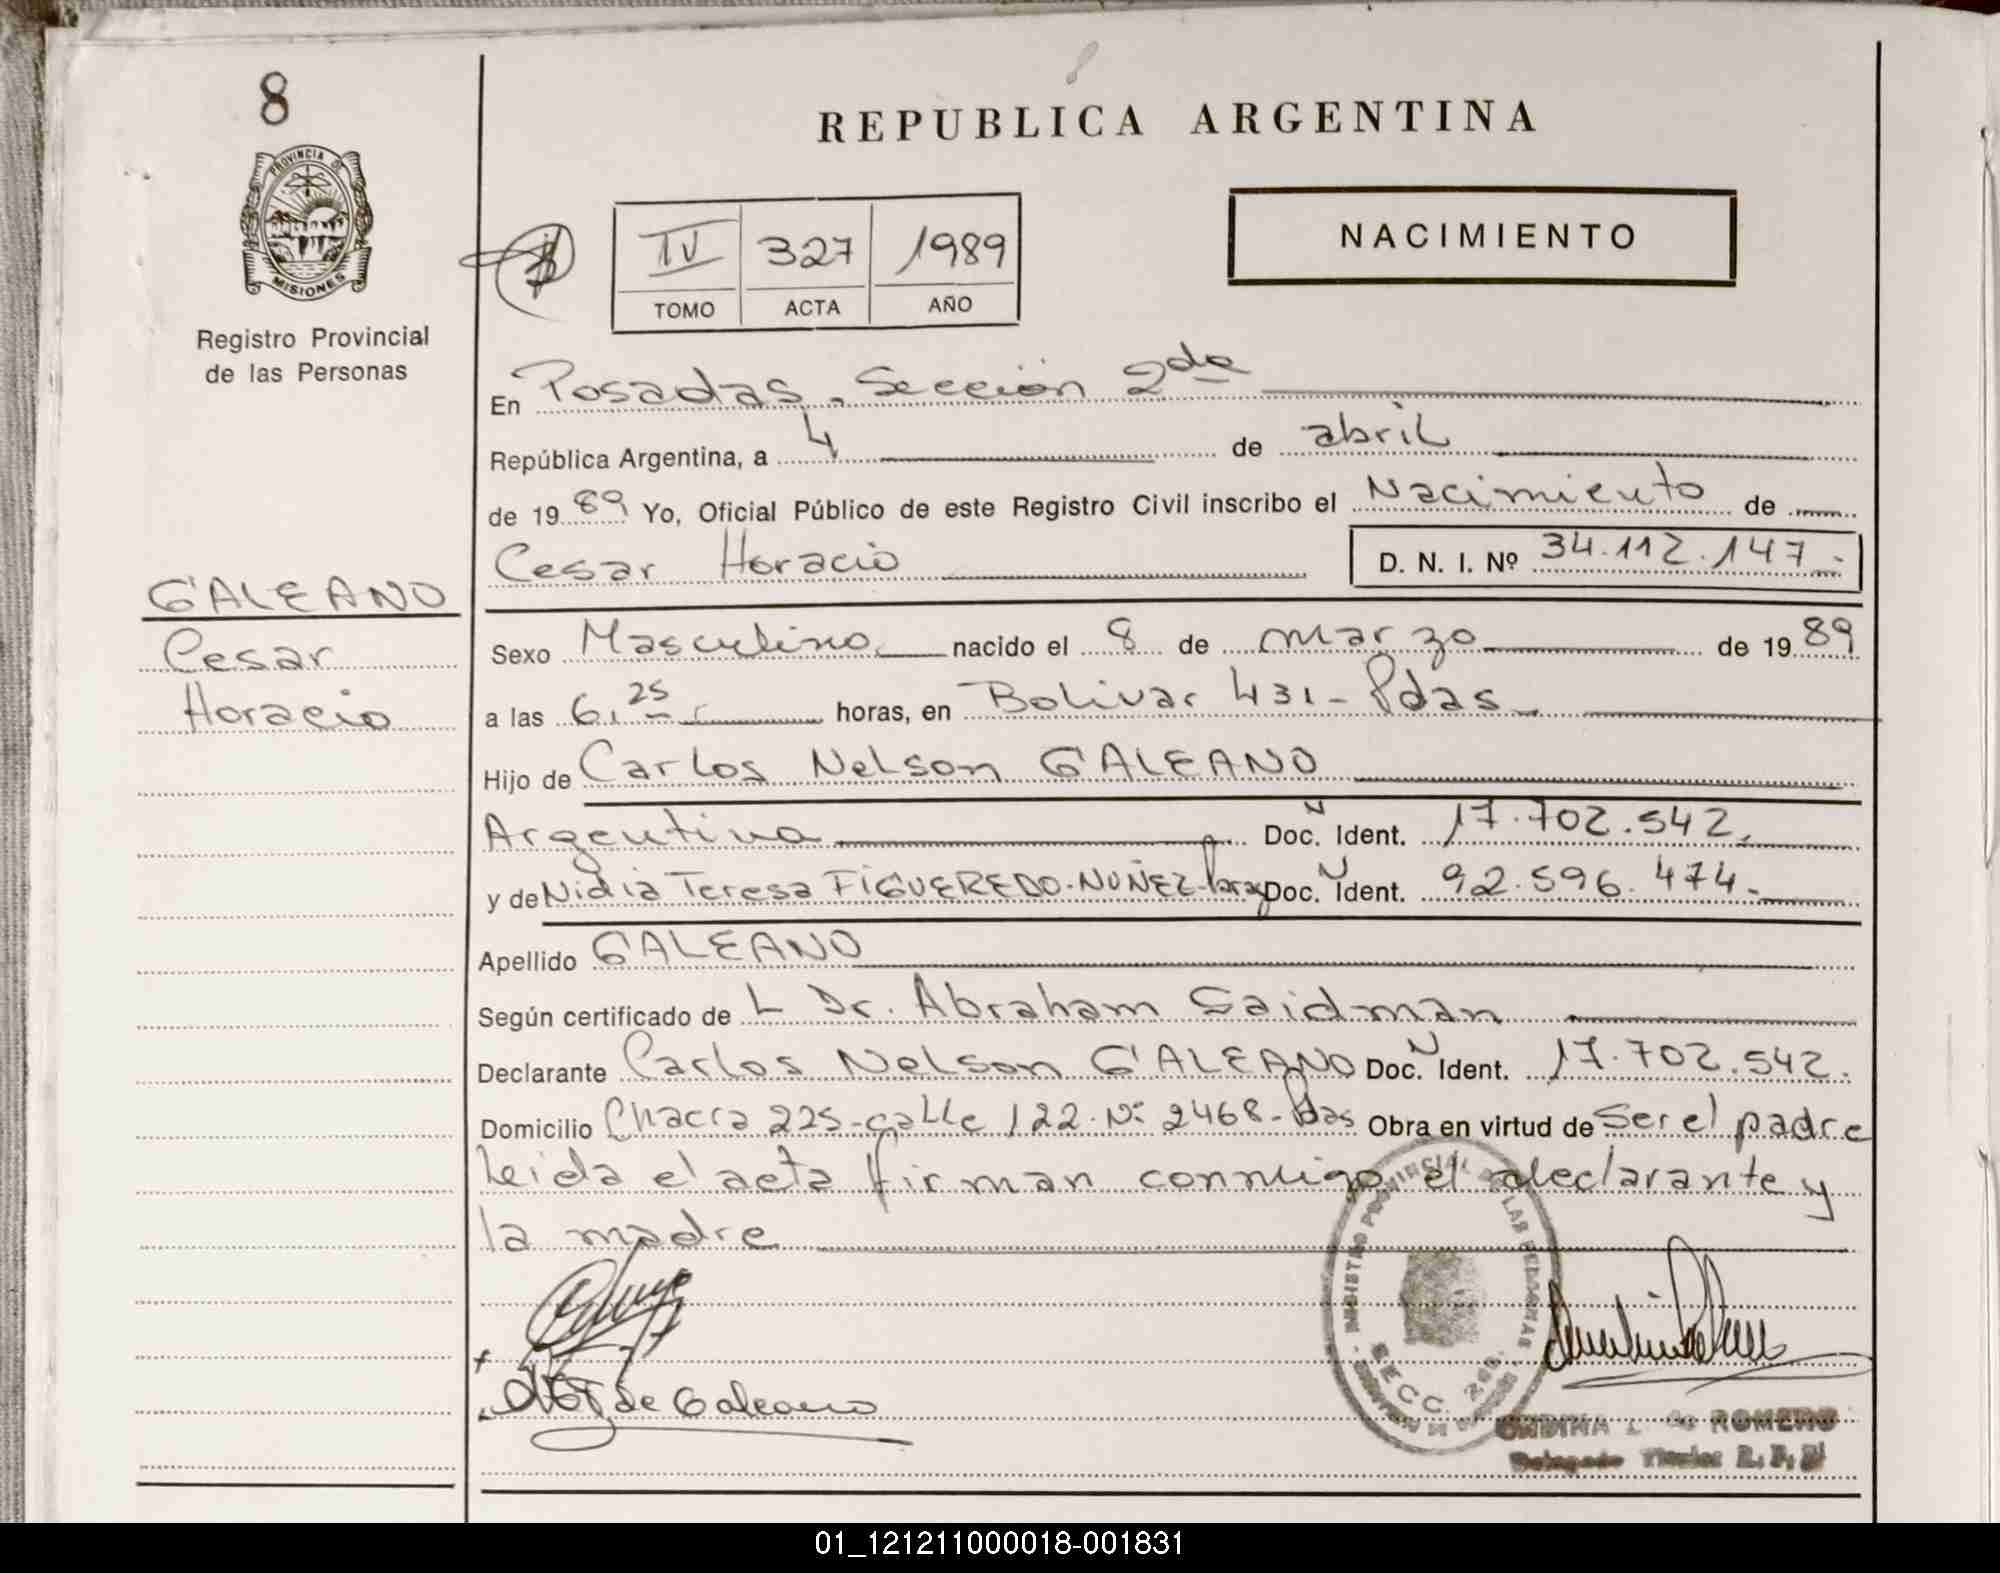 8
PROVINCIA DE
MISIONES
Registro Provincial
de las Personas
GALEANO
Cesar
Horacio
REPUBLICA ARGENTINA
IV 327 1989
TOMO ACTA AÑO
NACIMIENTO
En Posadas. Sección 2da
República Argentina, a 4 de abril
de 1989 Yo, Oficial Público de este Registro Civil inscribo el Nacimiento de
Cesar Horacio D. N. I. Nº 34.112.147.-
Sexo Masculino nacido el 8 de marzo de 1989
a las 6,25 horas, en Bolivar 431 - Pdas.
Hijo de Carlos Nelson GALEANO
Argentina Doc. N Ident. 17.702.542.
y de Nidia Teresa FIGUEREDO-NUÑEZ- Doc. N Ident. 92.596.474.-
Apellido GALEANO
Según certificado de L Dr. Abraham Saidman
Declarante Carlos Nelson GALEANO Doc. N Ident. 17.702.542.
Domicilio Chacra 225-calle 122. Nº 2468-Pdas Obra en virtud de Ser el padre
Leida el acta firman conmigo el declarante y
la madre
REGISTRO PROVINCIAL DE LAS PERSONAS
SECC. 2da.
de Galeano
ONDINA de ROMERO
Delegado Titular R. P. P.
01_121211000018-001831